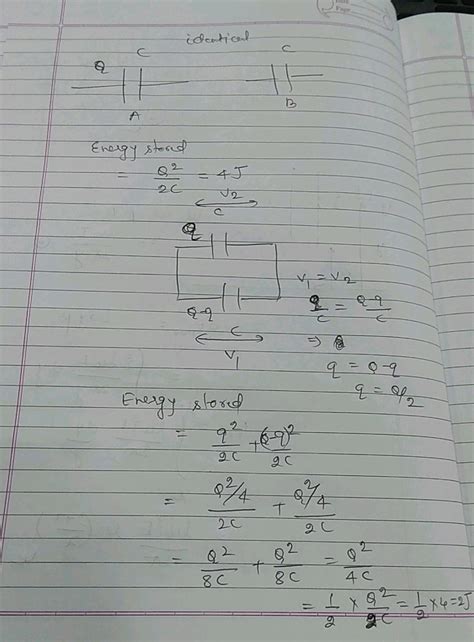 identical
C C
Q
A B
Energy stored
= Q²/2C = 4J
V₂
C
q
Q-q
C
V₁
V₁ = V₂
q/C = Q-q/C
⇒
q = Q-q
q = Q/2
Energy stored
= q²/2C + (Q-q)²/2C
= Q²/4/2C + Q²/4/2C
= Q²/8C + Q²/8C = Q²/4C
= 1/2 × Q²/2C = 1/2 × 4 = 2J